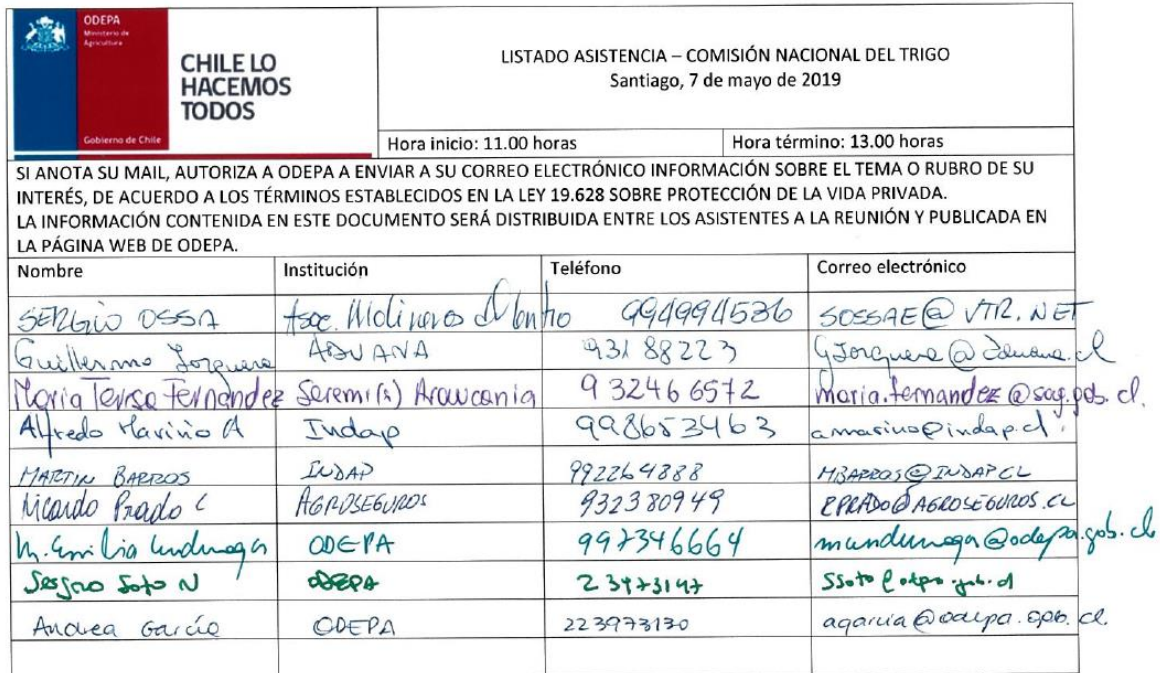 ODEPA
Ministerio de
Agricultura
CHILE LO
HACEMOS
TODOS
Gobierno de Chile
LISTADO ASISTENCIA – COMISIÓN NACIONAL DEL TRIGO
Santiago, 7 de mayo de 2019
Hora inicio: 11.00 horas Hora término: 13.00 horas
SI ANOTA SU MAIL, AUTORIZA A ODEPA A ENVIAR A SU CORREO ELECTRÓNICO INFORMACIÓN SOBRE EL TEMA O RUBRO DE SU
INTERÉS, DE ACUERDO A LOS TÉRMINOS ESTABLECIDOS EN LA LEY 19.628 SOBRE PROTECCIÓN DE LA VIDA PRIVADA.
LA INFORMACIÓN CONTENIDA EN ESTE DOCUMENTO SERÁ DISTRIBUIDA ENTRE LOS ASISTENTES A LA REUNIÓN Y PUBLICADA EN
LA PÁGINA WEB DE ODEPA.
Nombre Institución Teléfono Correo electrónico
SERGIO OSSA Asoc. Molineros del Centro 994994536 SOSSAE@VTR.NET
Guillermo Jorquera ADUANA 93188223 GJorquera@aduana.cl
Maria Teresa Fernández Seremi(s) Araucania 9 32466572 maria.fernandez@sag.gob.cl.
Alfredo Mariño A Indap 998653463 amarino@indap.cl
MARTIN BARROS INDAP 992264888 MBARROS@INDAP.CL
Ricardo Prado C AGROSEGUROS 932380949 RPRADO@AGROSEGUROS.CL
M. Emilia Undurraga ODEPA 997346664 mundurraga@odepa.gob.cl
Sergio Soto N ODEPA 23973147 ssoto@odepa.gob.cl
Andrea García ODEPA 223973130 agarcia@odepa.gob.cl.